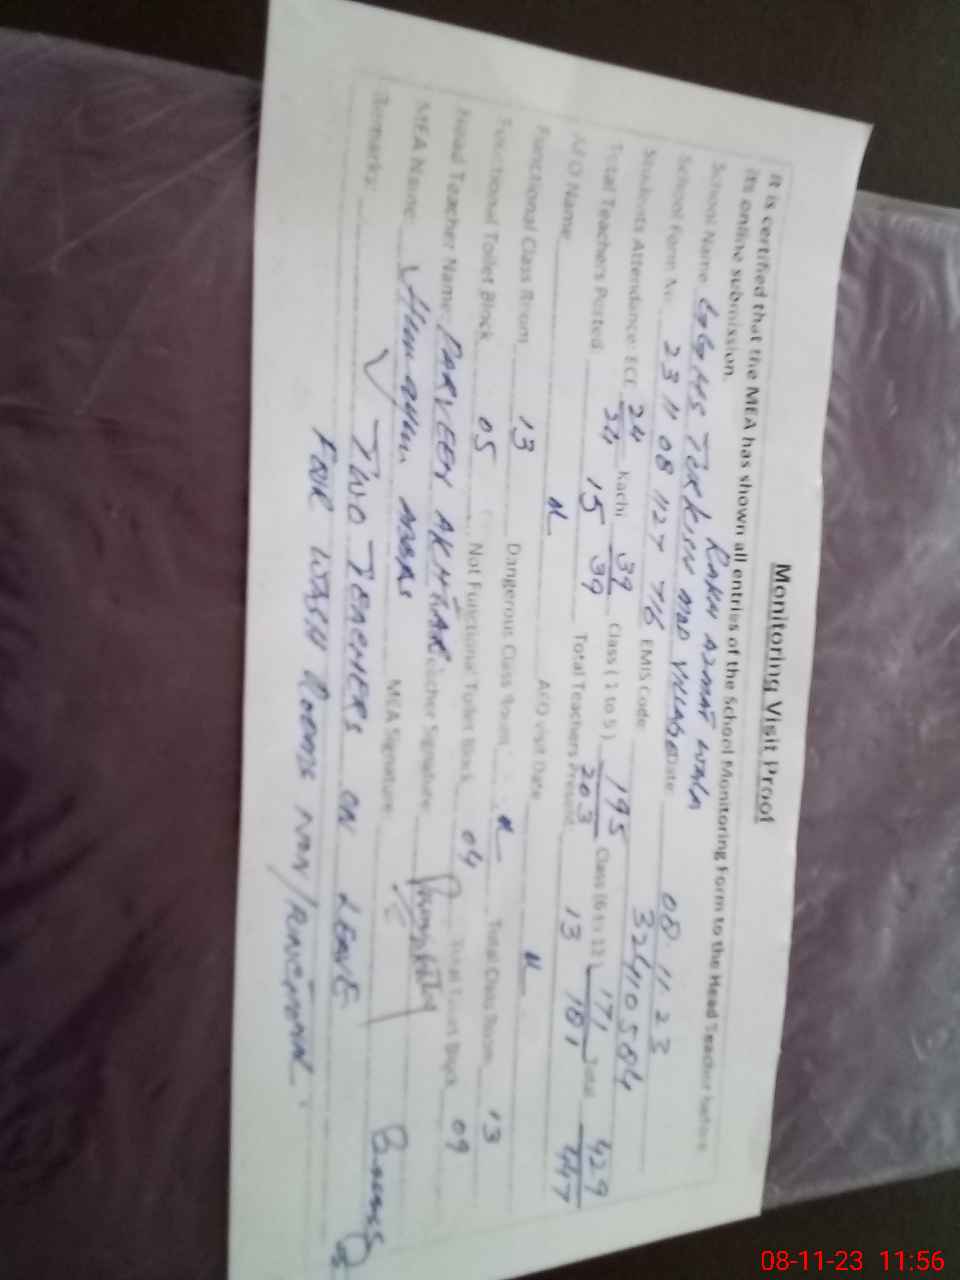 Monitoring Visit Proof
It is certified that the MEA has shown all entries of the School Monitoring Form to the Head Teacher before
its online submission.
RAKH AZMAT WALA
School Name GGHS TORKINN AND VILLAGE Date 08 11 23
School Form No. 23 11 08 1127 716 EMIS Code: 32410584
Students Attendance: ECE 24/34 Kachi 39/39 Class ( 1 to 5 ) 195/203 Class (6 to 12) 171/181 Total 429/447
Total Teachers Posted 15 Total Teachers Present 13
AEO Name AEO visit Date
Functional Class Room 13 Dangerous Class Room Total Class Room 13
Functional Toilet Block 05 Not Functional Toilet Block 04 Total Toilet Block 09
Head Teacher Name PARVEEN AKHTAR Teacher Signature
MEA Name Humayun MEA Signature
Remarks: TWO TEACHERS ON LEAVE
FOUR WASH ROOMS NON/FUNCTIONAL.
08-11-23 11:56